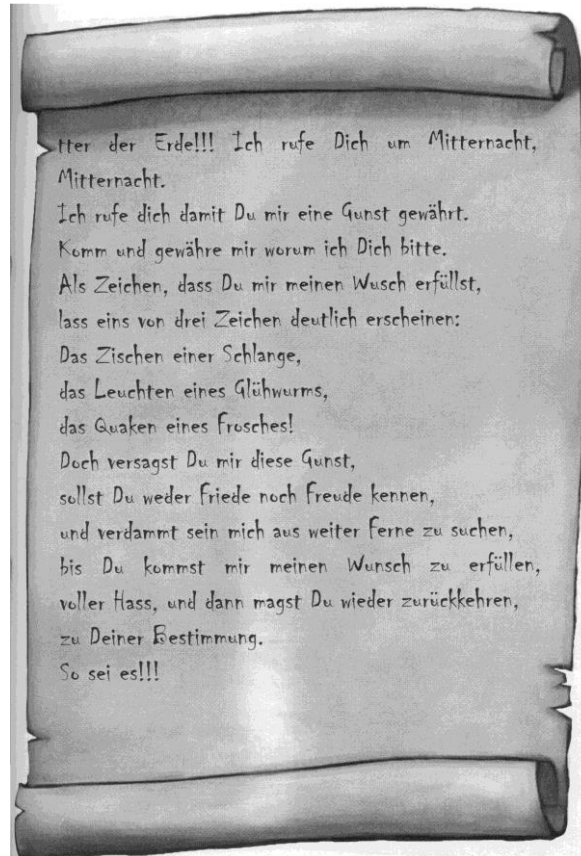 tter der Erde!!! Ich rufe Dich um Mitternacht,
Mitternacht.
Ich rufe dich damit Du mir eine Gunst gewährt.
Komm und gewähre mir worum ich Dich bitte.
Als Zeichen, dass Du mir meinen Wusch erfüllst,
lass eins von drei Zeichen deutlich erscheinen:
Das Zischen einer Schlange,
das Leuchten eines Glühwurms,
das Quaken eines Frosches!
Doch versagst Du mir diese Gunst,
sollst Du weder Friede noch Freude kennen,
und verdammt sein mich aus weiter Ferne zu suchen,
bis Du kommst mir meinen Wunsch zu erfüllen,
voller Hass, und dann magst Du wieder zurückkehren,
zu Deiner Bestimmung.
So sei es!!!